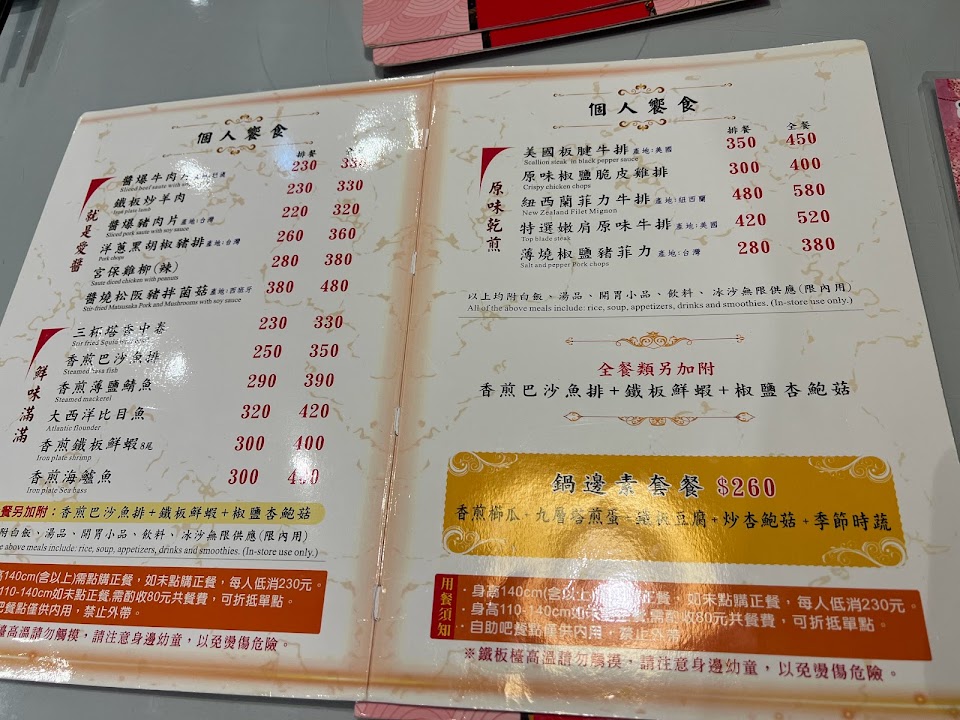 個人饗食
排餐
醬爆牛肉片
Sliced beef saute with soy
230 330
鐵板炒羊肉
Iron plate lamb
230 330
醬爆豬肉片 產地:台灣
Sliced pork saute with soy sauce
220 320
洋蔥黑胡椒豬排 產地:台灣
Pork chops
260 360
宮保雞柳(辣)
Saute diced chicken with peanuts
280 380
醬燒松阪豬拌菌菇 產地:西班牙
Stir-fried Matsusaka Pork and Mushrooms with soy sauce
380 480
就是愛醬
三杯塔香中卷
Stir fried Squid
230 330
香煎巴沙魚排
Steamed basa fish
250 350
香煎薄鹽鯖魚
Steamed mackerel
290 390
大西洋比目魚
Atlantic flounder
320 420
香煎鐵板鮮蝦 8尾
Iron plate shrimp
300 400
香煎海鱸魚
Iron plate Sea bass
300
鮮味滿滿
餐另加附:香煎巴沙魚排+鐵板鮮蝦+椒鹽杏鮑菇
附白飯、湯品、開胃小品、飲料、冰沙無限供應(限內用)
above meals include: rice, soup, appetizers, drinks and smoothies. (In-store use only.)
140cm(含以上)需點購正餐,如未點購正餐,每人低消230元。
110-140cm如未點正餐,需酌收80元共餐費,可折抵單點。
吧餐點僅供內用,禁止外帶。
檯高溫請勿觸摸,請注意身邊幼童,以免燙傷危險。
個人饗食
排餐 全餐
美國板腱牛排 產地:美國
Scallion steak in black pepper sauce
350 450
原味椒鹽脆皮雞排
Crispy chicken chops
300 400
紐西蘭菲力牛排 產地:紐西蘭
New Zealand Filet Mignon
480 580
特選嫩肩原味牛排 產地:美國
Top blade steak
420 520
薄燒椒鹽豬菲力 產地:台灣
Salt and pepper Pork chops
280 380
原味乾煎
以上均附白飯、湯品、開胃小品、飲料、冰沙無限供應(限內用)
All of the above meals include: rice, soup, appetizers, drinks and smoothies. (In-store use only.)
全餐類另加附
香煎巴沙魚排+鐵板鮮蝦+椒鹽杏鮑菇
鍋邊素套餐 $260
香煎櫛瓜+九層塔煎蛋+鐵板豆腐+炒杏鮑菇+季節時蔬
用餐須知
・身高140cm(含以上)需點購正餐,如未點購正餐,每人低消230元。
・身高110-140cm如未點正餐,需酌收80元共餐費,可折抵單點。
・自助吧餐點僅供內用,禁止外帶
※鐵板檯高溫請勿觸摸,請注意身邊幼童,以免燙傷危險。